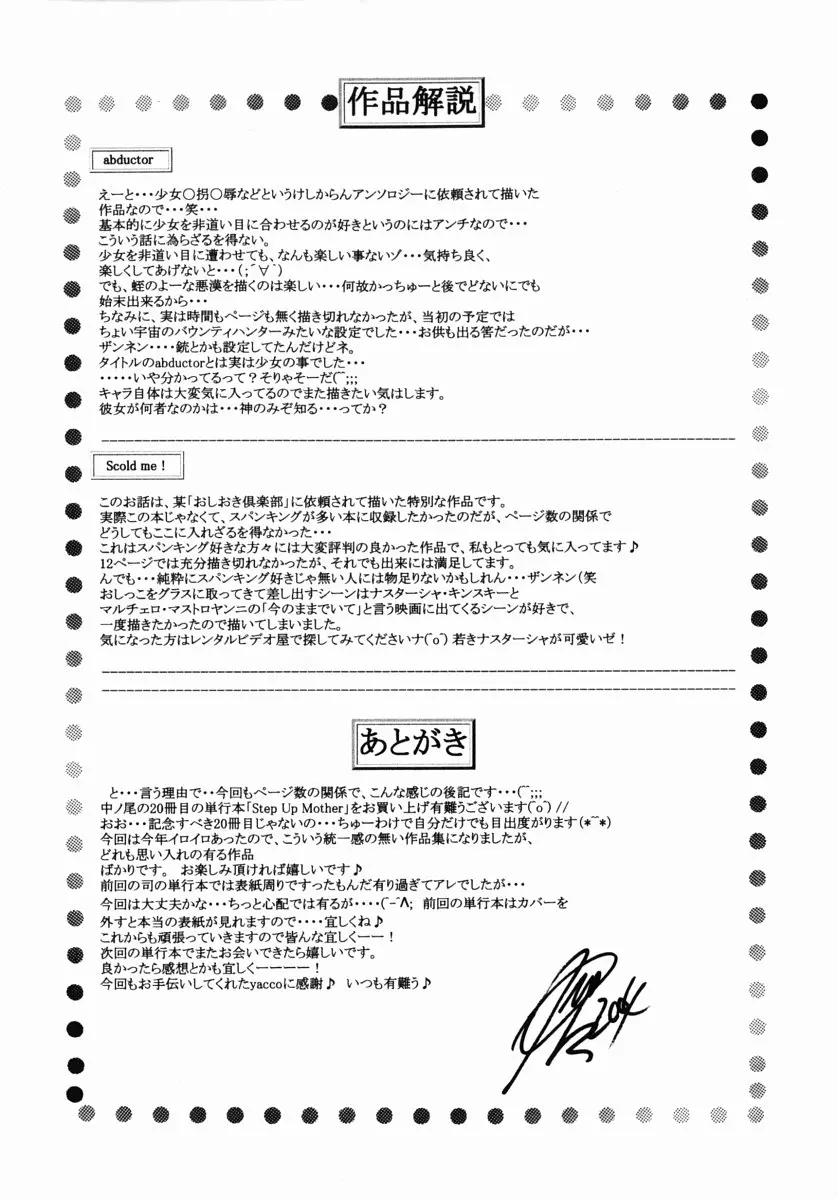 作品解説
abductor
えーと・・・少女〇拐〇辱などというけしからんアンソロジーに依頼されて描いた
作品なので・・・笑・・・
基本的に少女を非道い目に合わせるのが好きというのにはアンチなので・・・
こういう話に為らざるを得ない。
少女を非道い目に遭わせても、なんも楽しい事ないゾ・・・気持ち良く、
楽しくしてあげないと・・・(;´∀`)
でも、蛭のよーな悪漢を描くのは楽しい・・・何故かっちゅーと後でどないにでも
始末出来るから・・・
ちなみに、実は時間もページも無く描き切れなかったが、当初の予定では
ちょい宇宙のバウンティハンターみたいな設定でした・・・お供も出る筈だったのだが・・・
ザンネン・・・・銃とかも設定してたんだけどネ。
タイトルのabductorとは実は少女の事でした・・・
・・・・・いや分かってるって？そりゃそーだ(^^;;;
キャラ自体は大変気に入ってるのでまた描きたい気はします。
彼女が何者なのかは・・・神のみぞ知る・・・ってか？
Scold me！
このお話は、某「おしおき倶楽部」に依頼されて描いた特別な作品です。
実際この本じゃなくて、スパンキングが多い本に収録したかったのだが、ページ数の関係で
どうしてもここに入れざるを得なかった・・・
これはスパンキング好きな方々には大変評判の良かった作品で、私もとっても気に入ってます♪
12ページでは充分描き切れなかったが、それでも出来には満足してます。
んでも・・・純粋にスパンキング好きじゃ無い人には物足りないかもしれん・・・ザンネン(笑
おしっこをグラスに取ってきて差し出すシーンはナスターシャ・キンスキーと
マルチェロ・マストロヤンニの「今のままでいて」と言う映画に出てくるシーンが好きで、
一度描きたかったので描いてしまいました。
気になった方はレンタルビデオ屋で探してみてくださいナ(^o^) 若きナスターシャが可愛いゼ！
あとがき
と・・・言う理由で・・今回もページ数の関係で、こんな感じの後記です・・・(^^;;;
中ノ尾の20冊目の単行本「Step Up Mother」をお買い上げ有難うございます(^o^)//
おお・・・記念すべき20冊目じゃないの・・・ちゅーわけで自分だけでも目出度がります(*^^*)
今回は今年イロイロあったので、こういう統一感の無い作品集になりましたが、
どれも思い入れの有る作品
ばかりです。 お楽しみ頂ければ嬉しいです♪
前回の司の単行本では表紙周りですったもんだ有り過ぎてアレでしたが・・・
今回は大丈夫かな・・・ちっと心配では有るが・・・・(^-^Λ; 前回の単行本はカバーを
外すと本当の表紙が見れますので・・・・宜しくね♪
これからも頑張っていきますので皆んな宜しくーー！
次回の単行本でまたお会いできたら嬉しいです。
良かったら感想とかも宜しくーーーー！
今回もお手伝いしてくれたyaccoに感謝♪ いつも有難う♪
2004